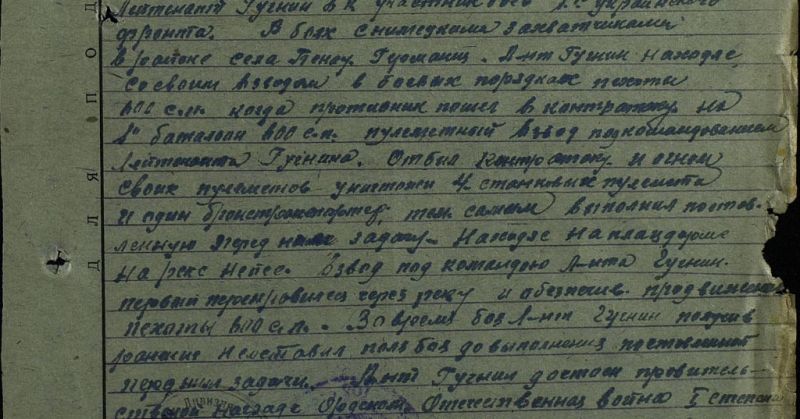 Лейтенант Гугнин В.К участник боев 1го украинского
фронта. В боях с немецкими захватчиками
в районе села Пенау. Л-нт Гугнин находяс
со своим взводом в боевых порядках пехоты
800 с.п. когда противник пошел в контратаку на
1й баталион 800 с.п. пулеметный взвод под командованием
Лейтенанта Гугнина. Отбил контратаку и огнем
своих пулеметов уничтожил 4 станковых пулемета
и один бронетранспортер, тем самым выполнил постав-
ленную перед ним задачу. Находяс на плацдарме
на реке Нейсе. Взвод под командою Л-нта Гугнин.
первый переправился через реку и обезпечив продвижение
пехоты 800 с.п. Во время боя Л-нт Гугнин получив
ранение не оставил поле боя до выполнения поставленной
перед ним задачи. Л-нт Гугнин достоен правитель-
ственой награде Орденом Отечественная война I степени
ДЛЯ ПОД